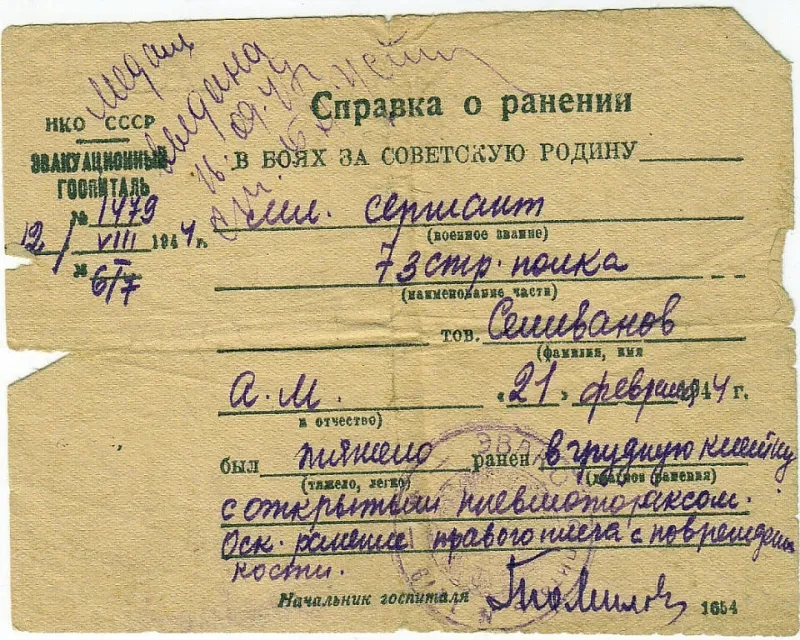 НКО СССР
ЭВАКУАЦИОННЫЙ
ГОСПИТАЛЬ
№ 1479
12/VIII 1944 г.
№ 6/7
Медаль
Справка о ранении
В БОЯХ ЗА СОВЕТСКУЮ РОДИНУ
мл. сержант
(военное звание)
73 стр. полка
(наименование части)
тов. Селиванов
(фамилия, имя
А. М. „21„ февраля 1944 г.
и отчество)
был тяжело ранен в грудную клетку
(тяжело, легко) (диагноз ранения)
с открытым пневмотораксом.
Оск. ранение правого плеча с поврежден
кости.
Начальник госпиталя
1654